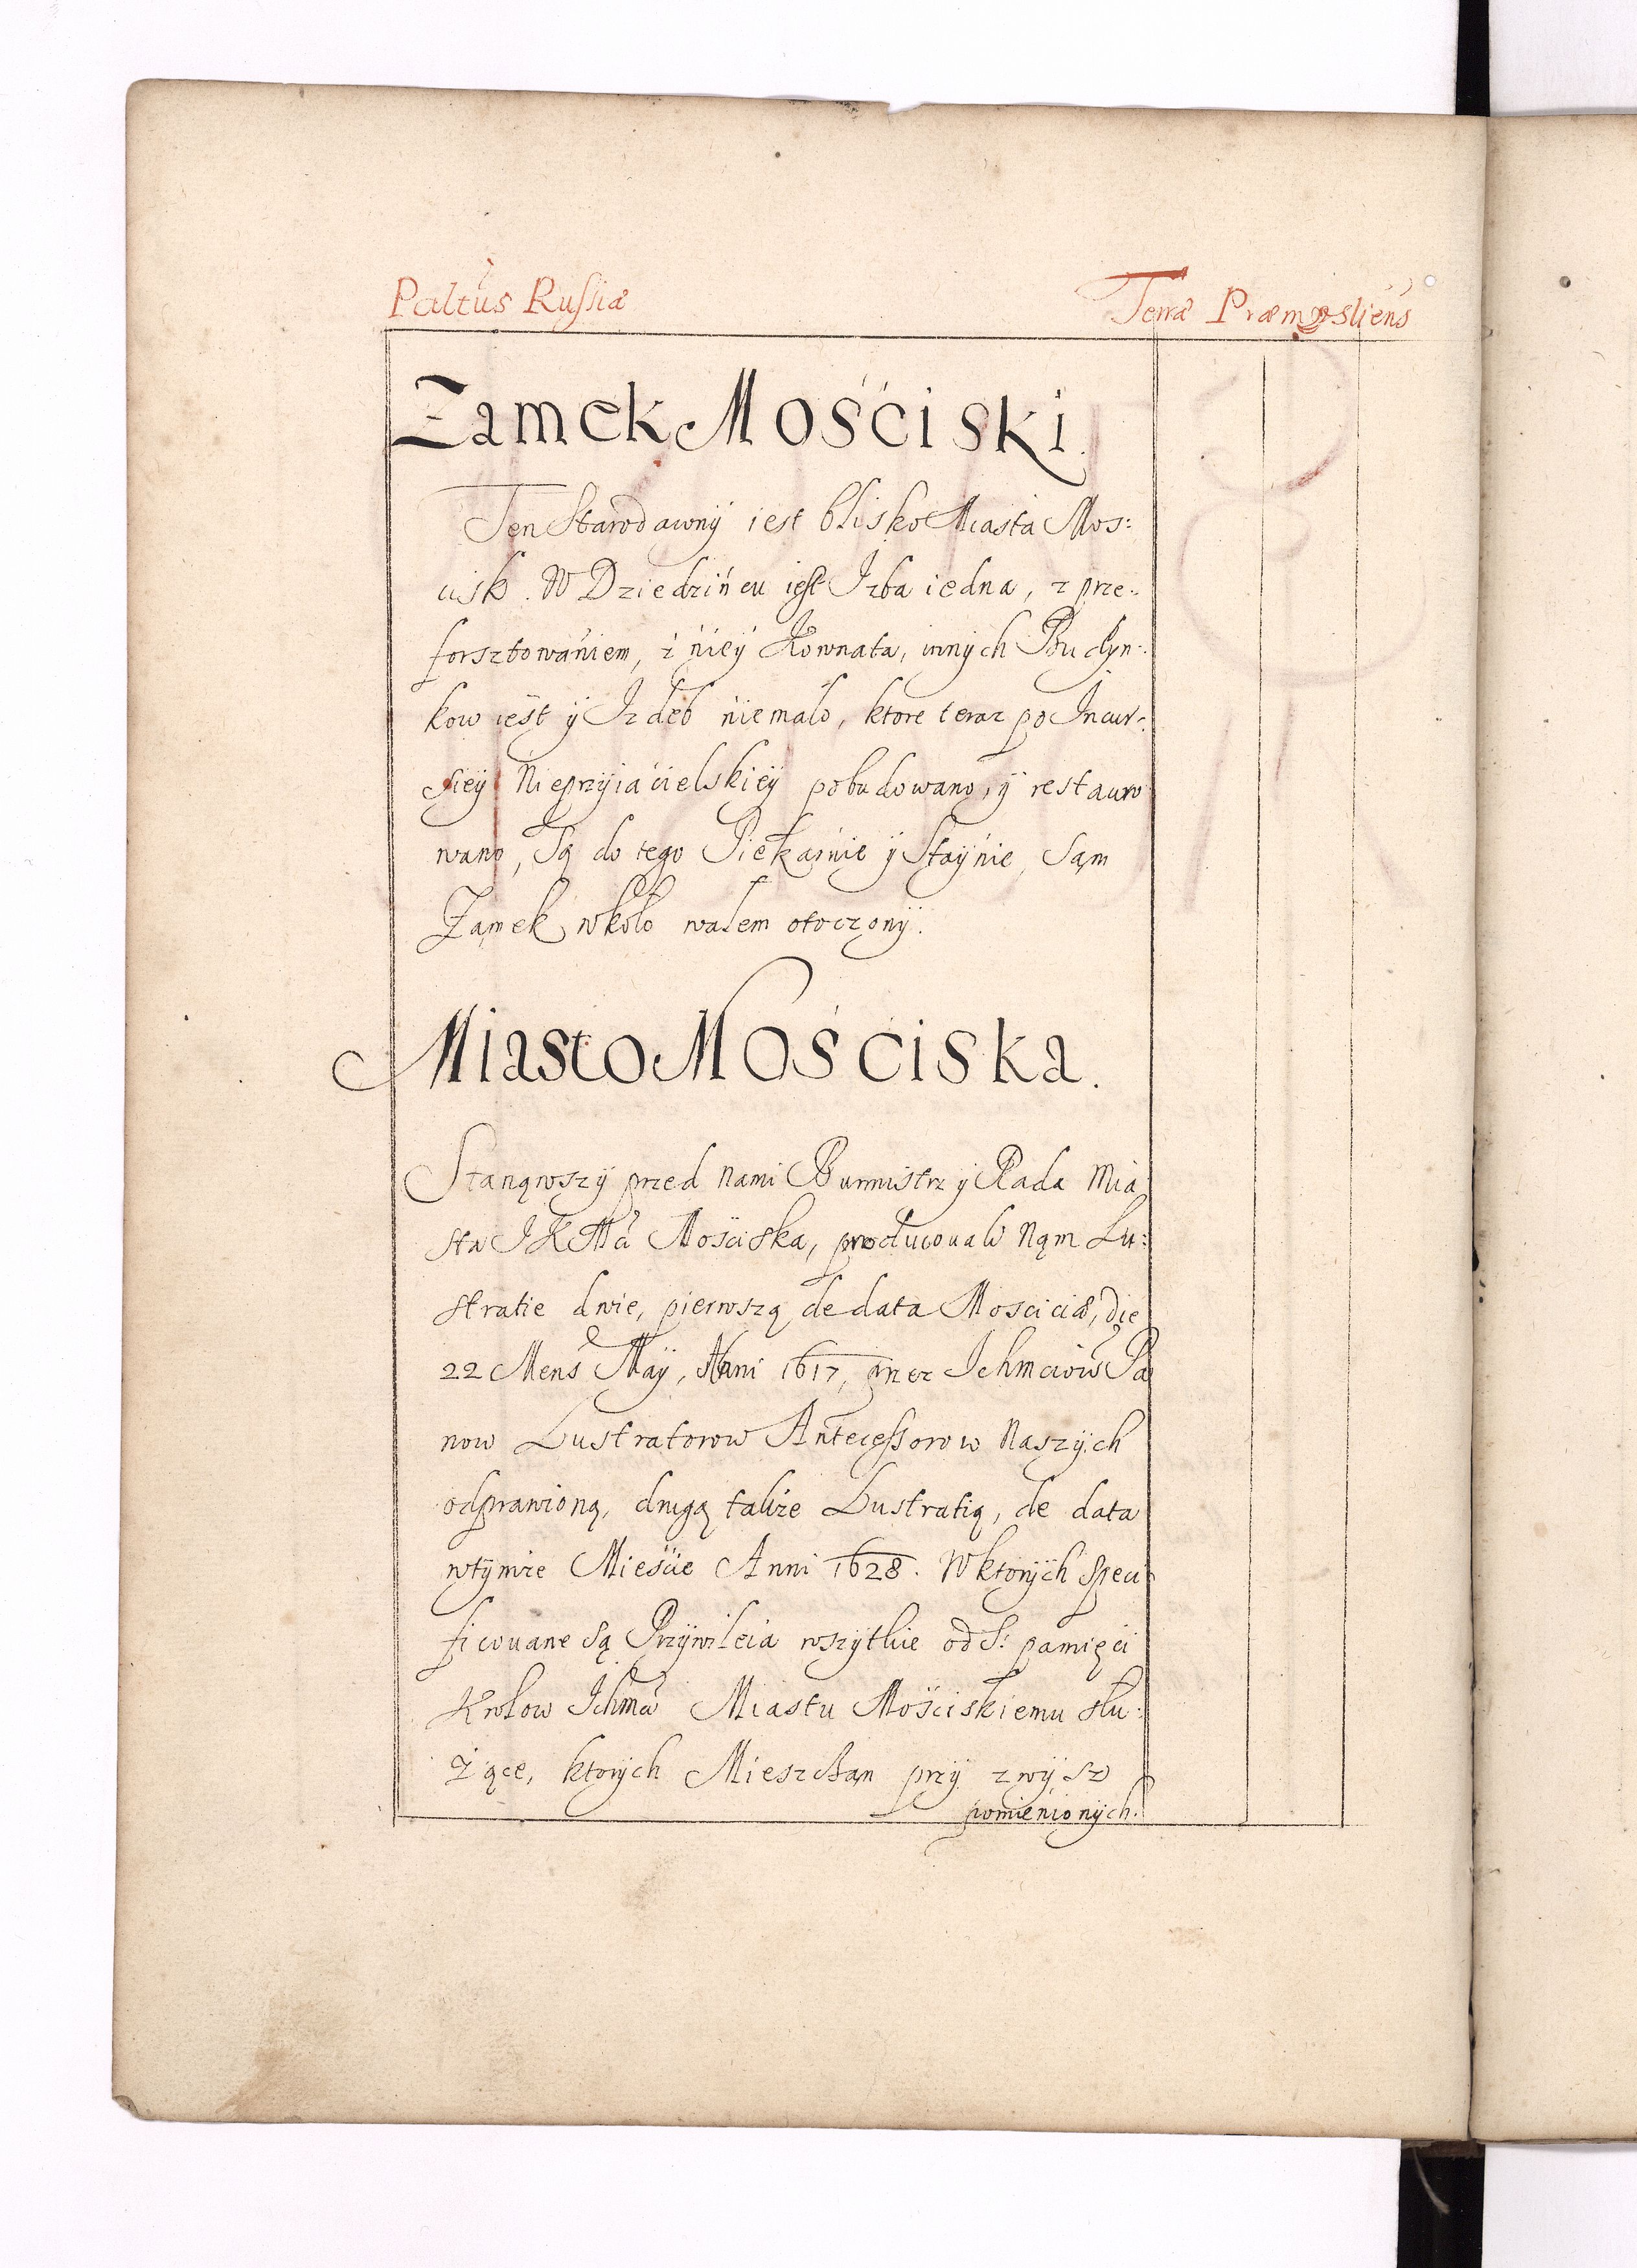 Paltus Russiæ
Terræ Præmysliens
Zamek Mościski.
Ten Starodawny iest blisko Miasta Mos:
cisk. W Dziedzińcu iest Izba iedna, z prze:
forsztowaniem, z niey Komnata, innych Budyn:
kow iest y Izdeb niemało, ktore teraz po Incur:
siey Nieprzyiacielskiey pobudowano, y restauro
wano, Są do tego Piekarnie y Staynie, Sąm
Zamek wkoło wałem otoczony.
Miasto Mościska.
Stanąwszy przed Nami Burmistrz y Rada Mia
sta JKMci Mościska, producowali Nąm Lu:
stratie dwie, pierwszą de data Mosciciæ, die
22 Mens Maÿ, Anni 1617, przez Ichmciow Pa
now Lustratorow Antecessorow Naszych
odprawioną, drugą także Lustratią, de data
wtymże Mieście Anni 1628. W ktorych Speci
ficowane Są Przywileia wszytkie od S: pamięci
Krolow Ichmci Miastu Mościskiemu słu:
żące, ktorych Mieszczan przy zwysz
pomienionych.